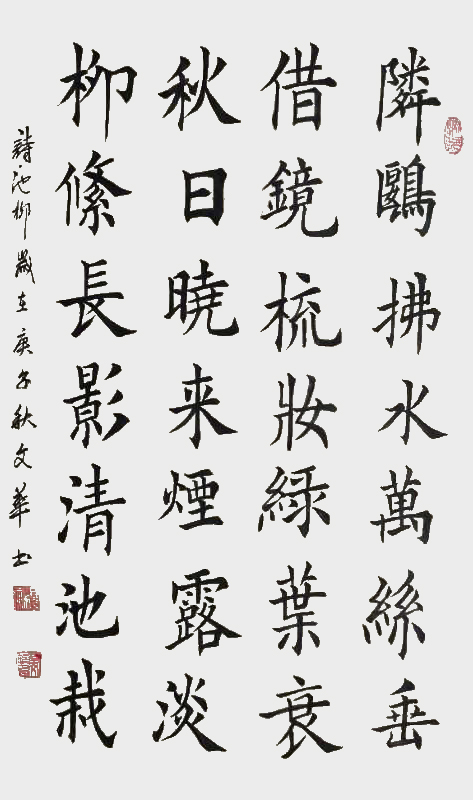 隣鷗拂水萬絲垂
借鏡梳妝綠葉衰
秋日曉来煙露淡
柳絛長影清池栽
詩池柳歲在庚子秋文華书